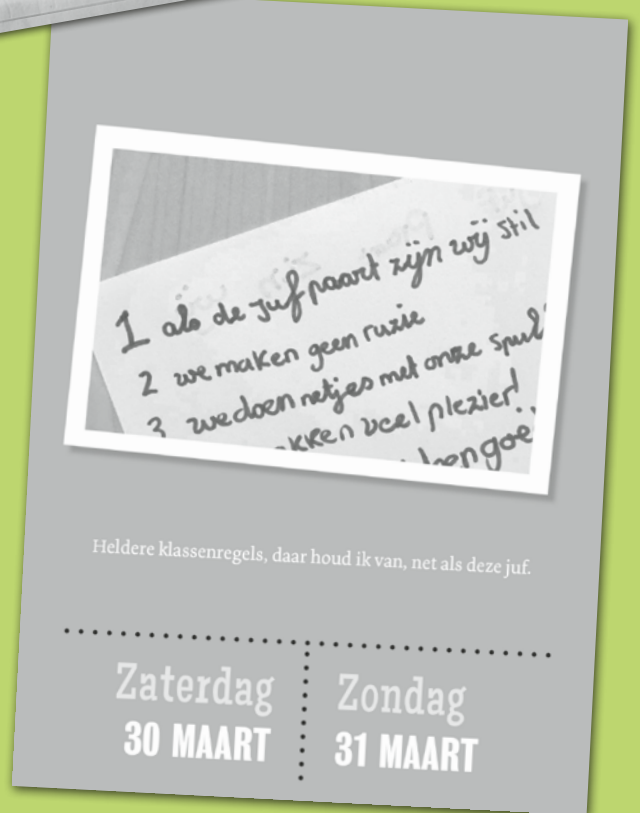 1 als de juf paart zijn wij stil
2 we maken geen ruzie
3 we doen netjes met onze spul
kken veel plezier!
Heldere klassenregels, daar houd ik van, net als deze juf.
Zaterdag
30 MAART
Zondag
31 MAART